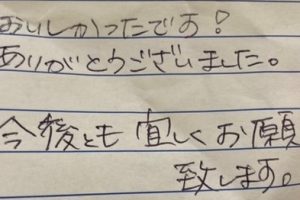 おいしかったです!
ありがとうございました。
今後とも宜しくお願
致します。